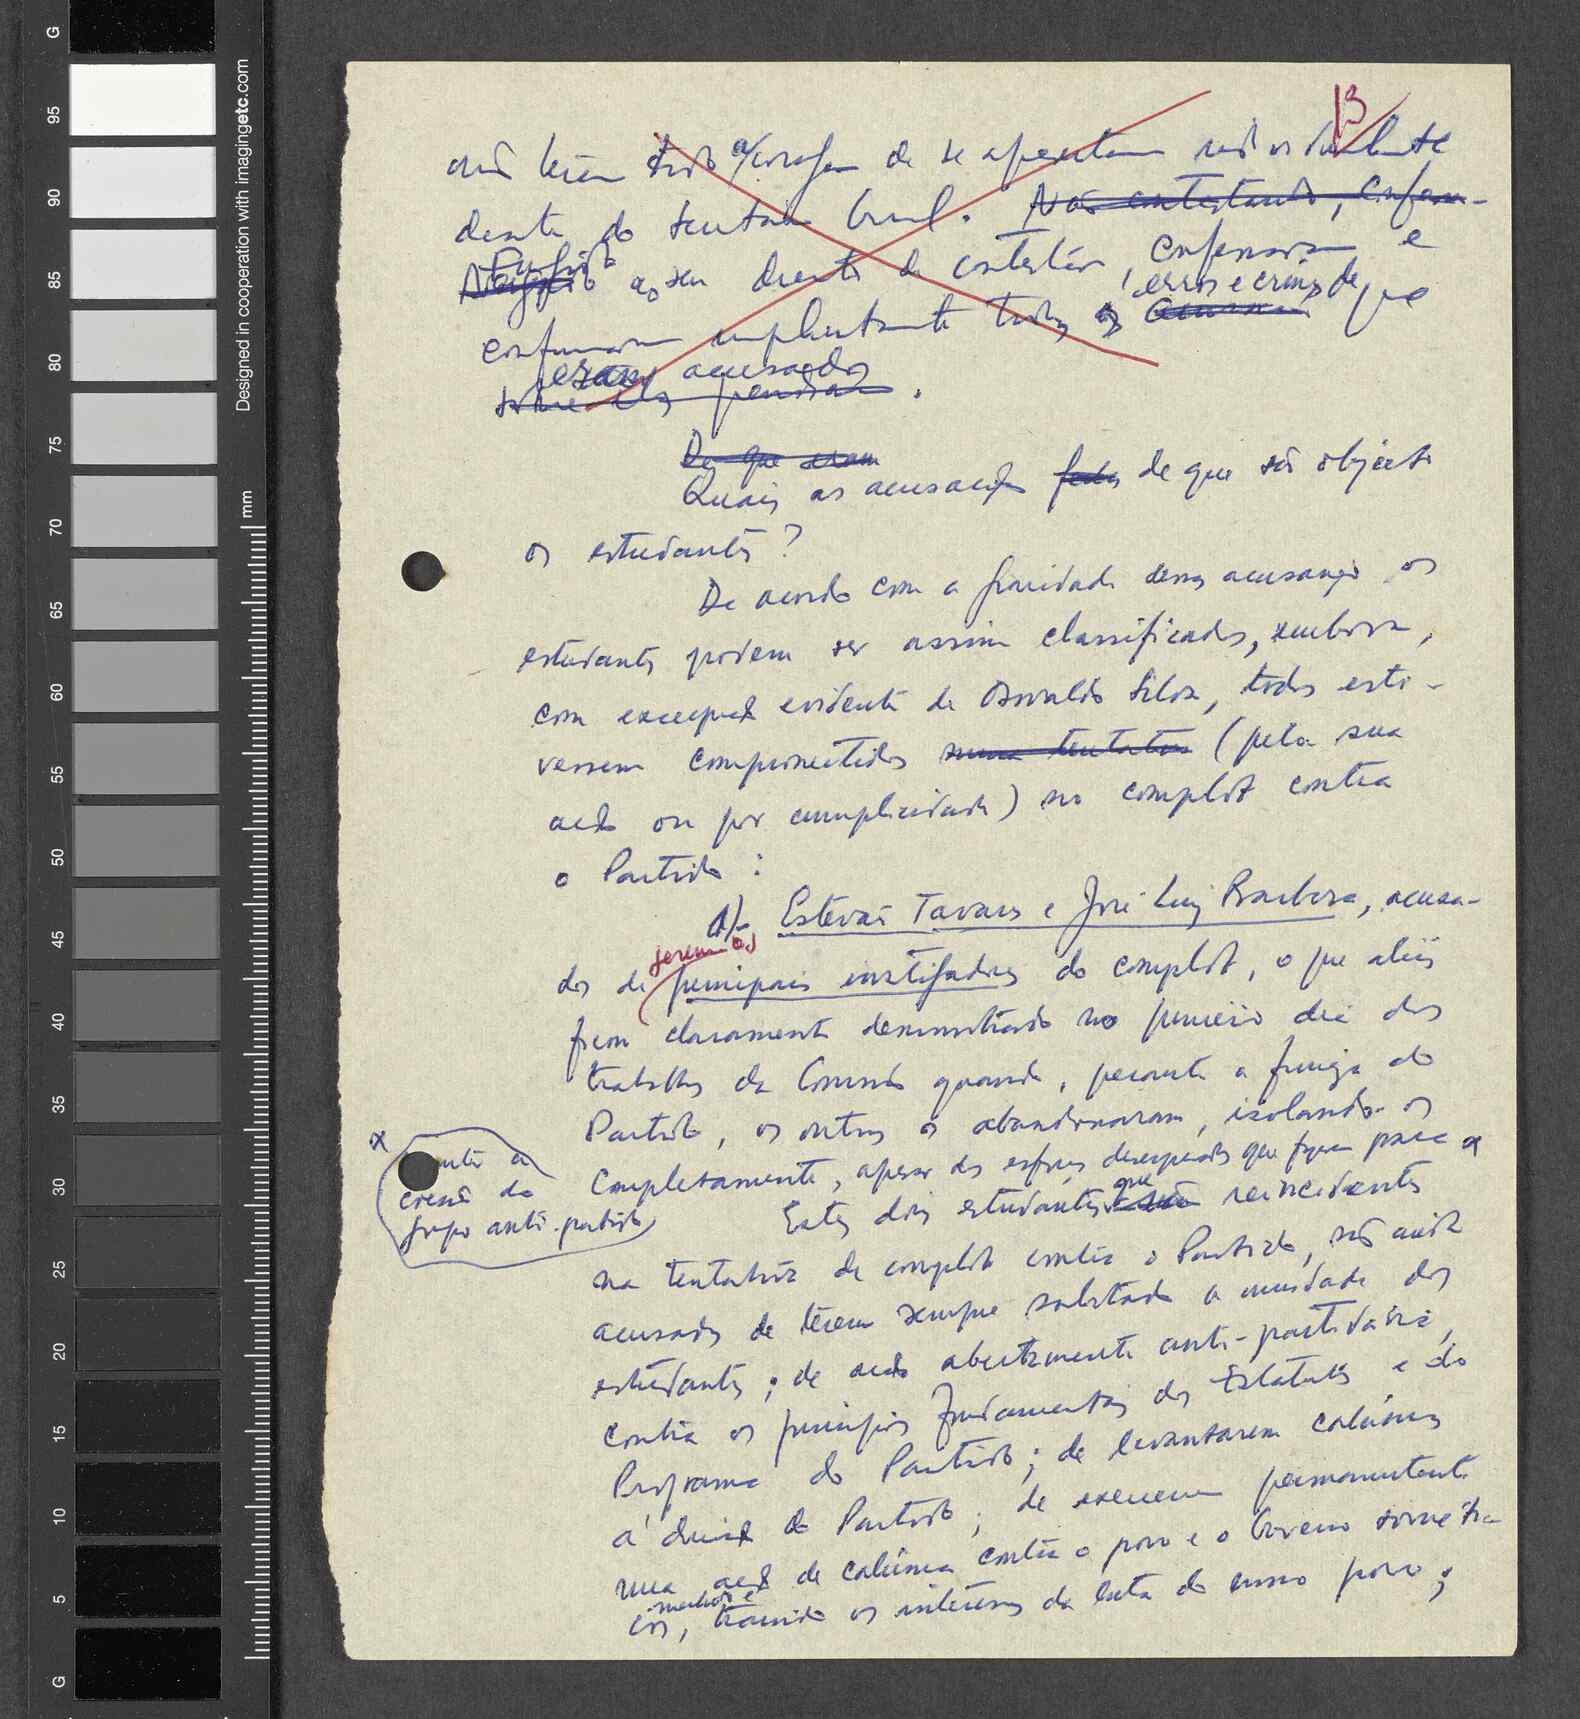 13
não terem tido a coragem de se apresentarem individualmente
diante do tribunal. Não contestando, confirm-
ao seu direito de contestar, confessaram e
erros e crimes de que
confirmaram implicitamente todos os
eram acusados
sobre eles pendiam.
De que eram
Quais as acusações feitas de que são objecto
os estudantes?
De acordo com a gravidade dessas acusações os
estudantes podem ser assim classificados, embora,
com excepção evidente de Osvaldo Silva, todos esti-
vessem comprometidos numa tentativa (pela sua
acção ou por cumplicidade) no complot contra
o Partido:
1)- Estevão Tavares e José Luiz Barbosa, acusa-
serem os
dos de principais instigadores do complot, o que aliás
ficou claramente demonstrado no primeiro dia dos
trabalhos da Comissão quando, perante a força do
Partido, os outros os abandonaram, isolando-os
completamente, apesar dos esforços desesperados que fizeram para x
x manter a
coesão do
grupo anti-partido
que
Estes dois estudantes, são reincidentes
na tentativa de complot contra o Partido, são ainda
acusados de terem sempre sabotado a unidade dos
estudantes; de acção abertamente anti-partidária,
contra os princípios fundamentais dos Estatutos e do
Programa do Partido; de levantarem calúnias
à direcção do Partido; de exercerem permanentemente
uma acção de calúnia contra o povo e o Governo soviéti-
cos, traindo os interesses da luta do nosso povo;